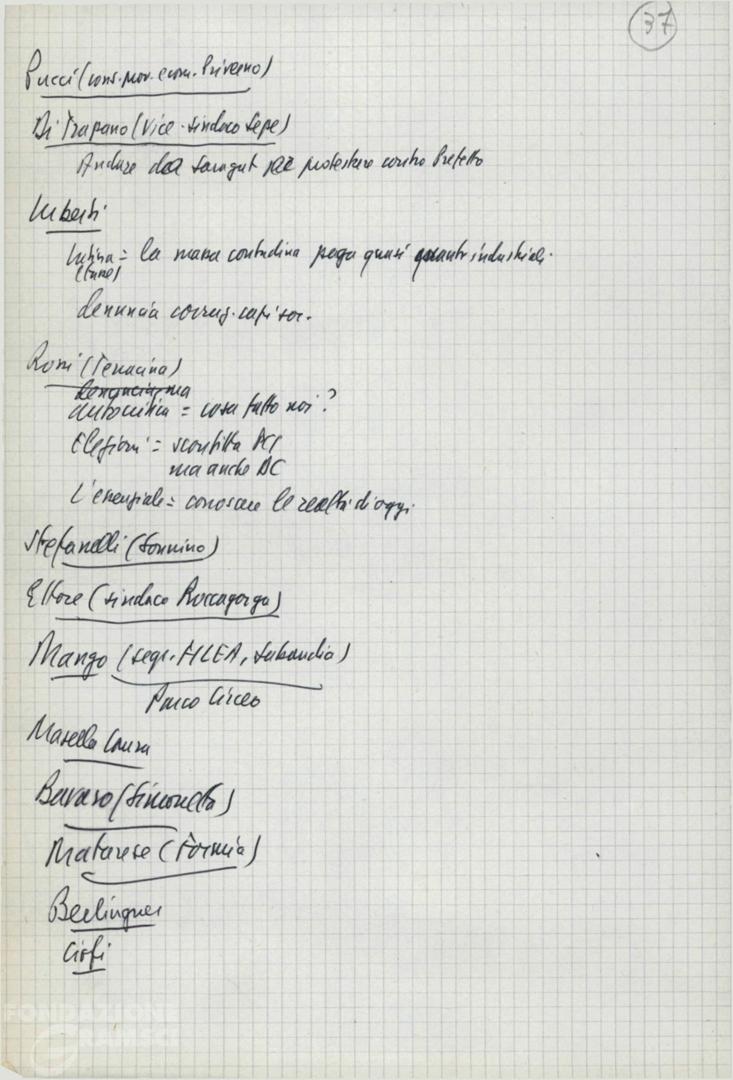 37
Pucci (cons. prov. e com. Priverno)
Di Trapano (Vice-sindaco Sepe)
Andare da Saragat per protestare contro Prefetto
Luberti
Latina = la massa contadina paga quasi quanto industriali.
(tasse)
denuncia
Rossi (Terracina)
autocritica = cosa fatto noi?
Elezioni = sconfitta PCI
ma anche DC
L'essenziale = conoscere le realtà di oggi
Stefanelli (Sonnino)
Ettore (sindaco Roccagorga)
Mango (segr. FILEA, Sabaudia)
Parco Circeo
Masella Laura
Bavaso (Simonetta)
Matarese (Formia)
Berlinguer
Ciofi
FONDAZIONE
GRAMSCI